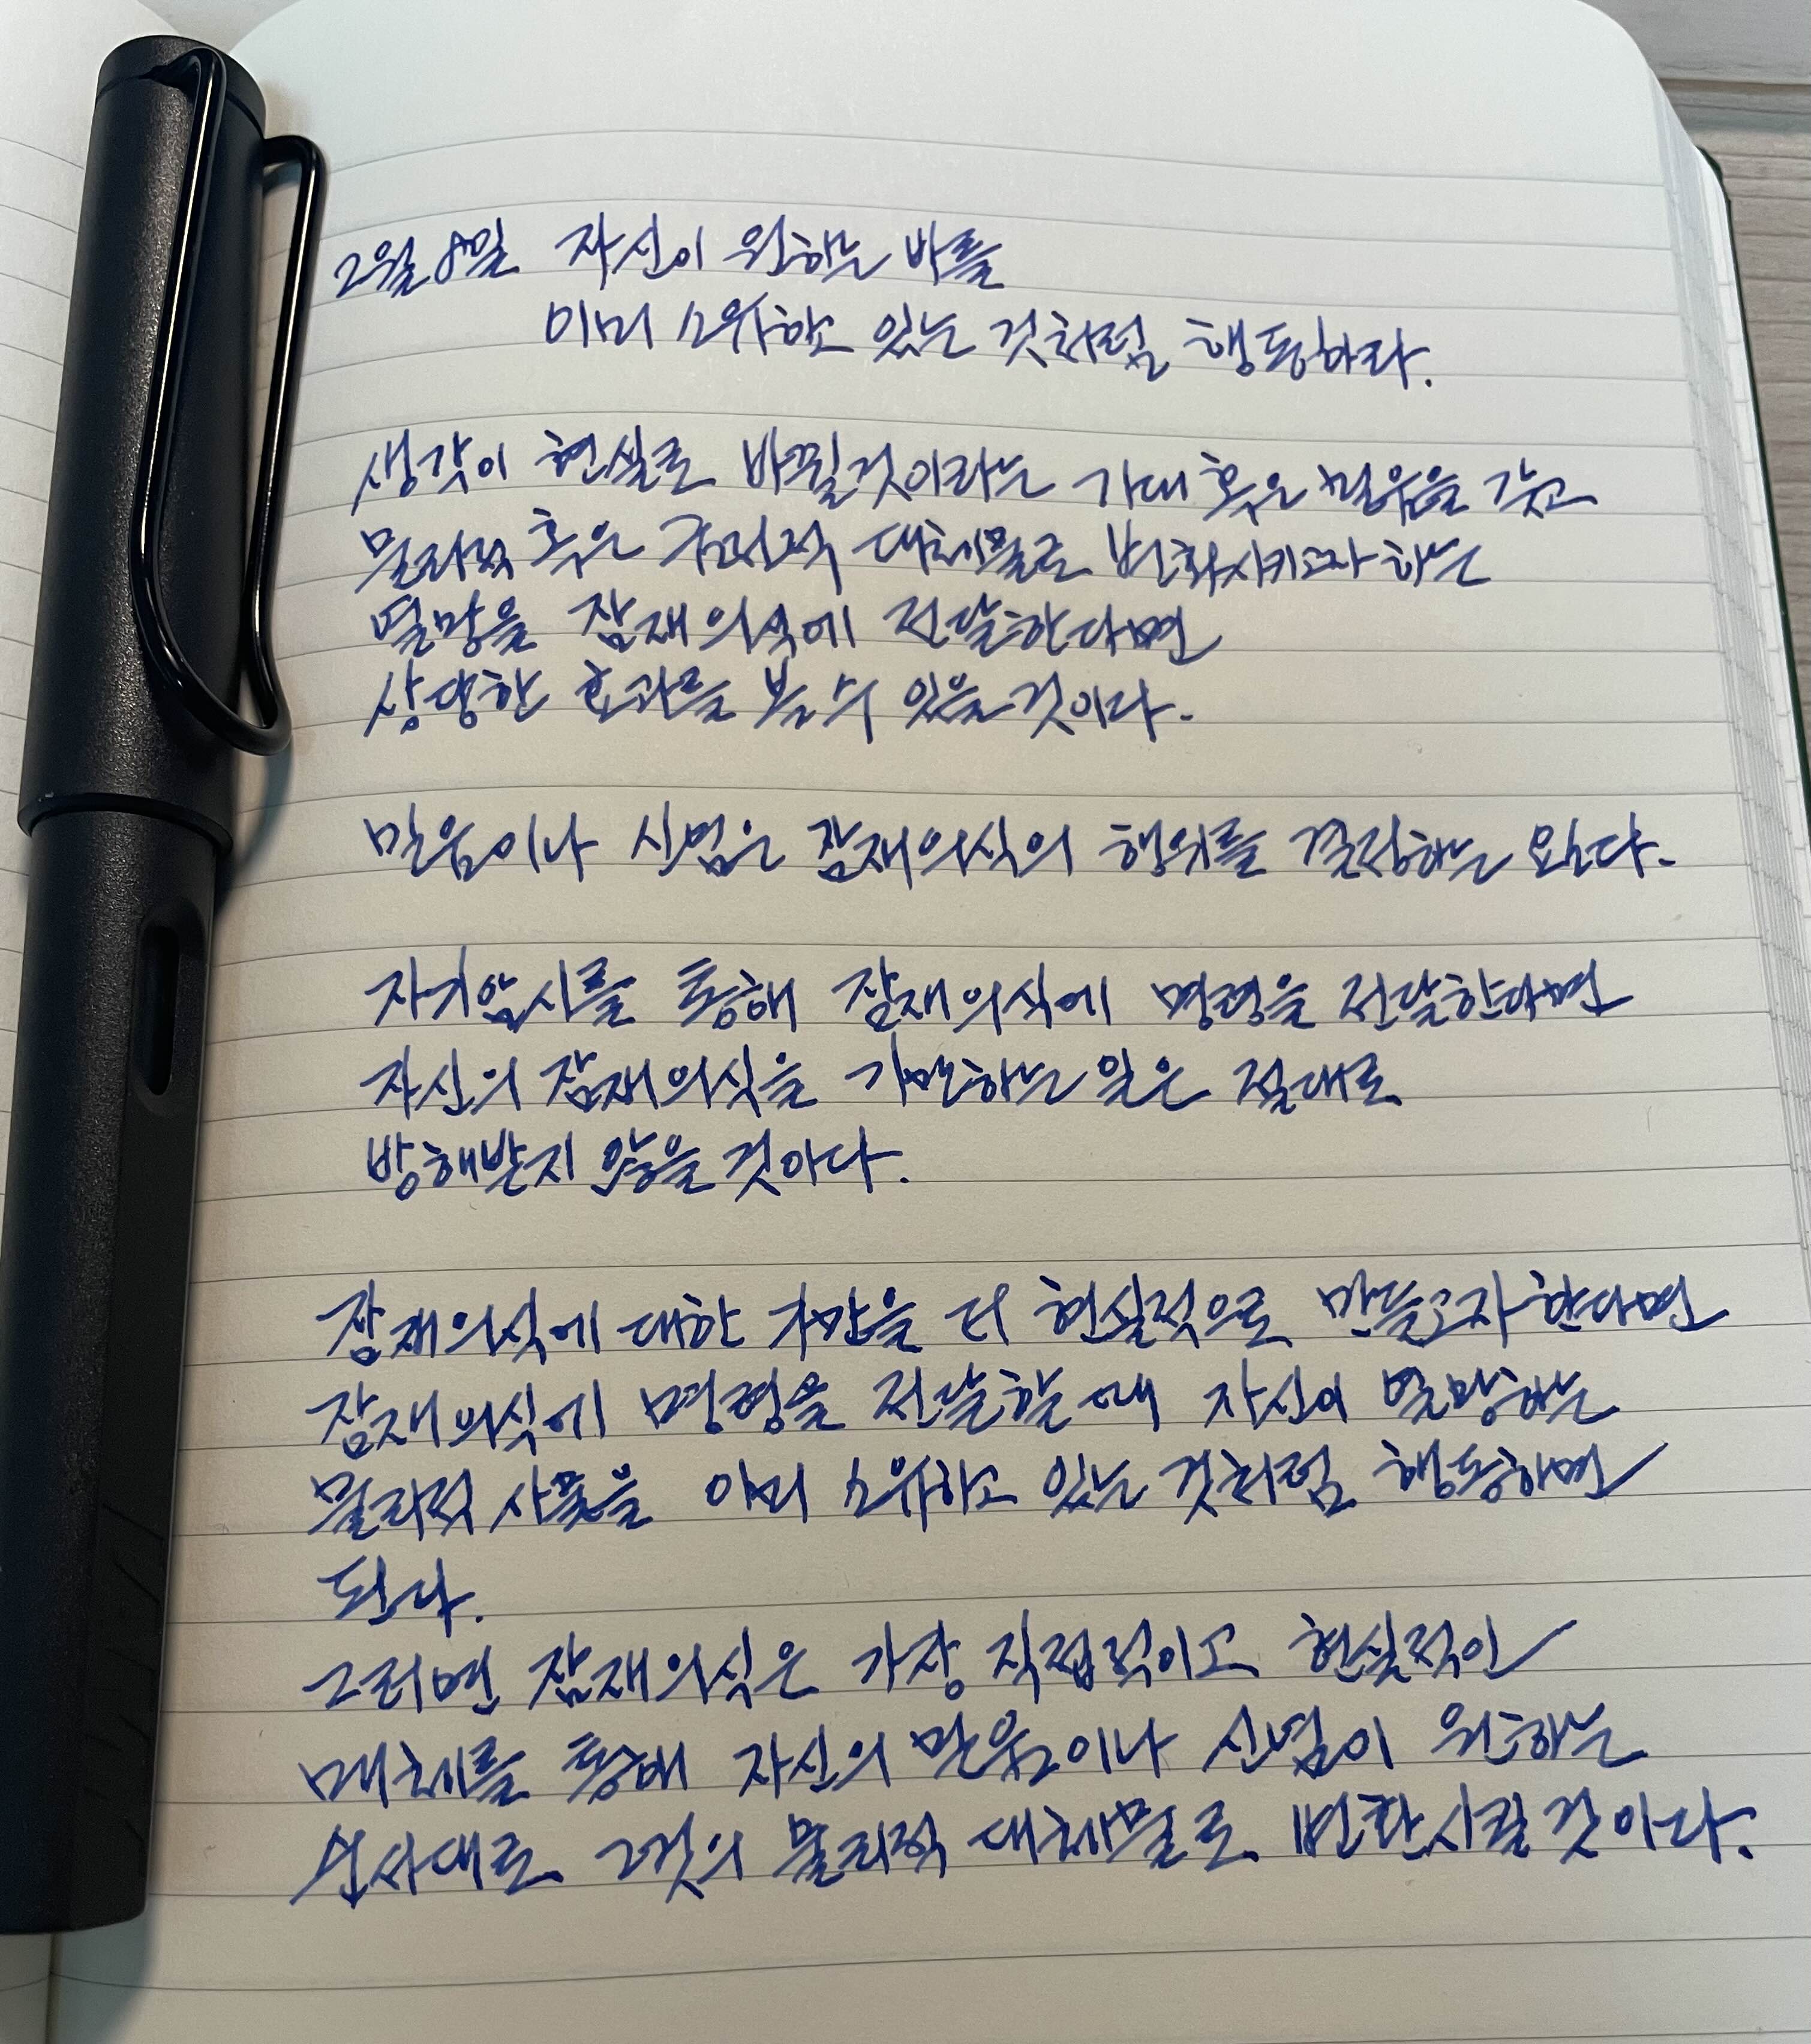 2월 8일 자신이 원하는 바를
이미 소유하고 있는 것처럼 행동하라.
생각이 현실로 바뀔것이라는 기대 혹은 믿음을 갖고
물리적 혹은 금전적 대체물로 변화시키고자 하는
열망을 잠재의식에 전달한다면
상당한 효과를 볼 수 있을 것이다.
믿음이나 신념은 잠재의식의 행위를 결정하는 요인다.
자기암시를 통해 잠재의식에 명령을 전달한다면
자신의 잠재의식을 기만하는 일은 절대로
방해받지 않을 것이다.
잠재의식에 대한 기만을 더 현실적으로 만들고자 한다면
잠재의식에 명령을 전달할 때 자신이 열망하는
물리적 사물을 이미 소유하고 있는 것처럼 행동하면
된다.
그러면 잠재의식은 가장 직접적이고 현실적인
매체를 통해 자신의 믿음이나 신념이 원하는
대로 그것의 물리적 대체물로 변환시킬 것이다.